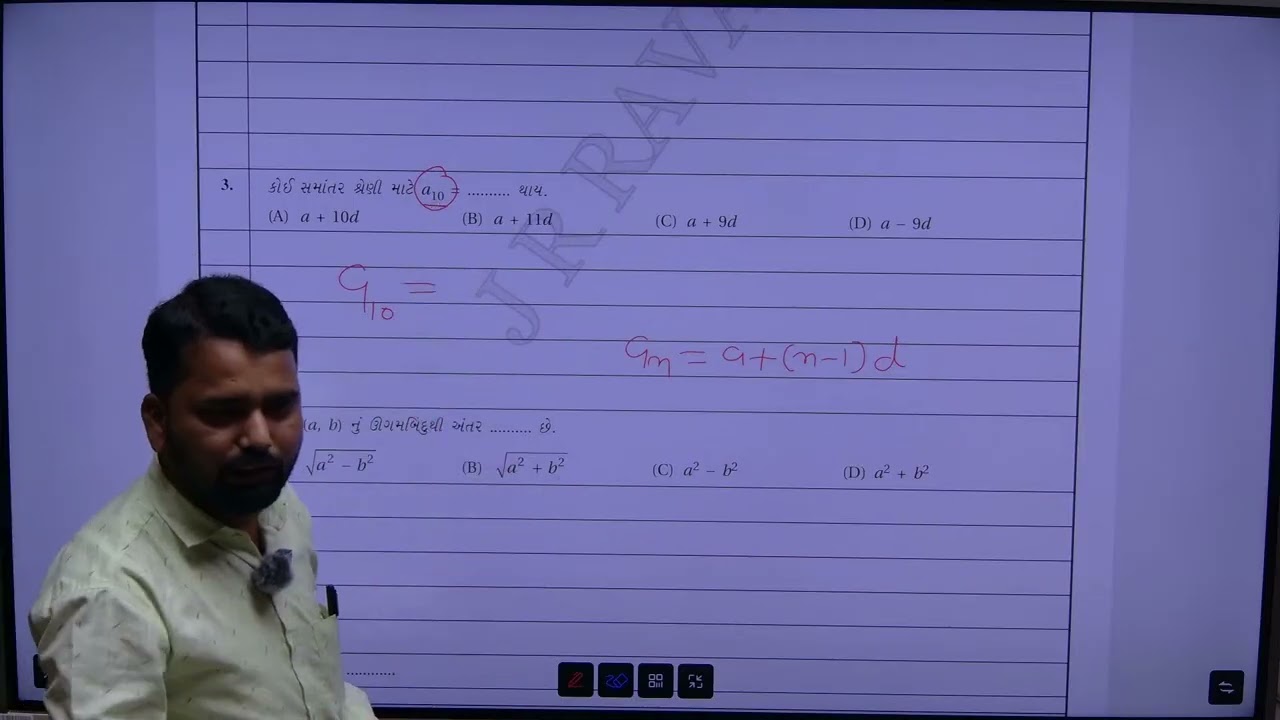 3. કોઈ સમાંતર શ્રેણી માટે a₁₀ = .......... થાય.
(A) a + 10d (B) a + 11d (C) a + 9d (D) a − 9d
a₁₀ =
aₙ = a + (n−1) d
(a, b) નું ઊગમબિંદુથી અંતર .......... છે.
√(a² − b²) (B) √(a² + b²) (C) a² − b² (D) a² + b²
............
J R RAVA